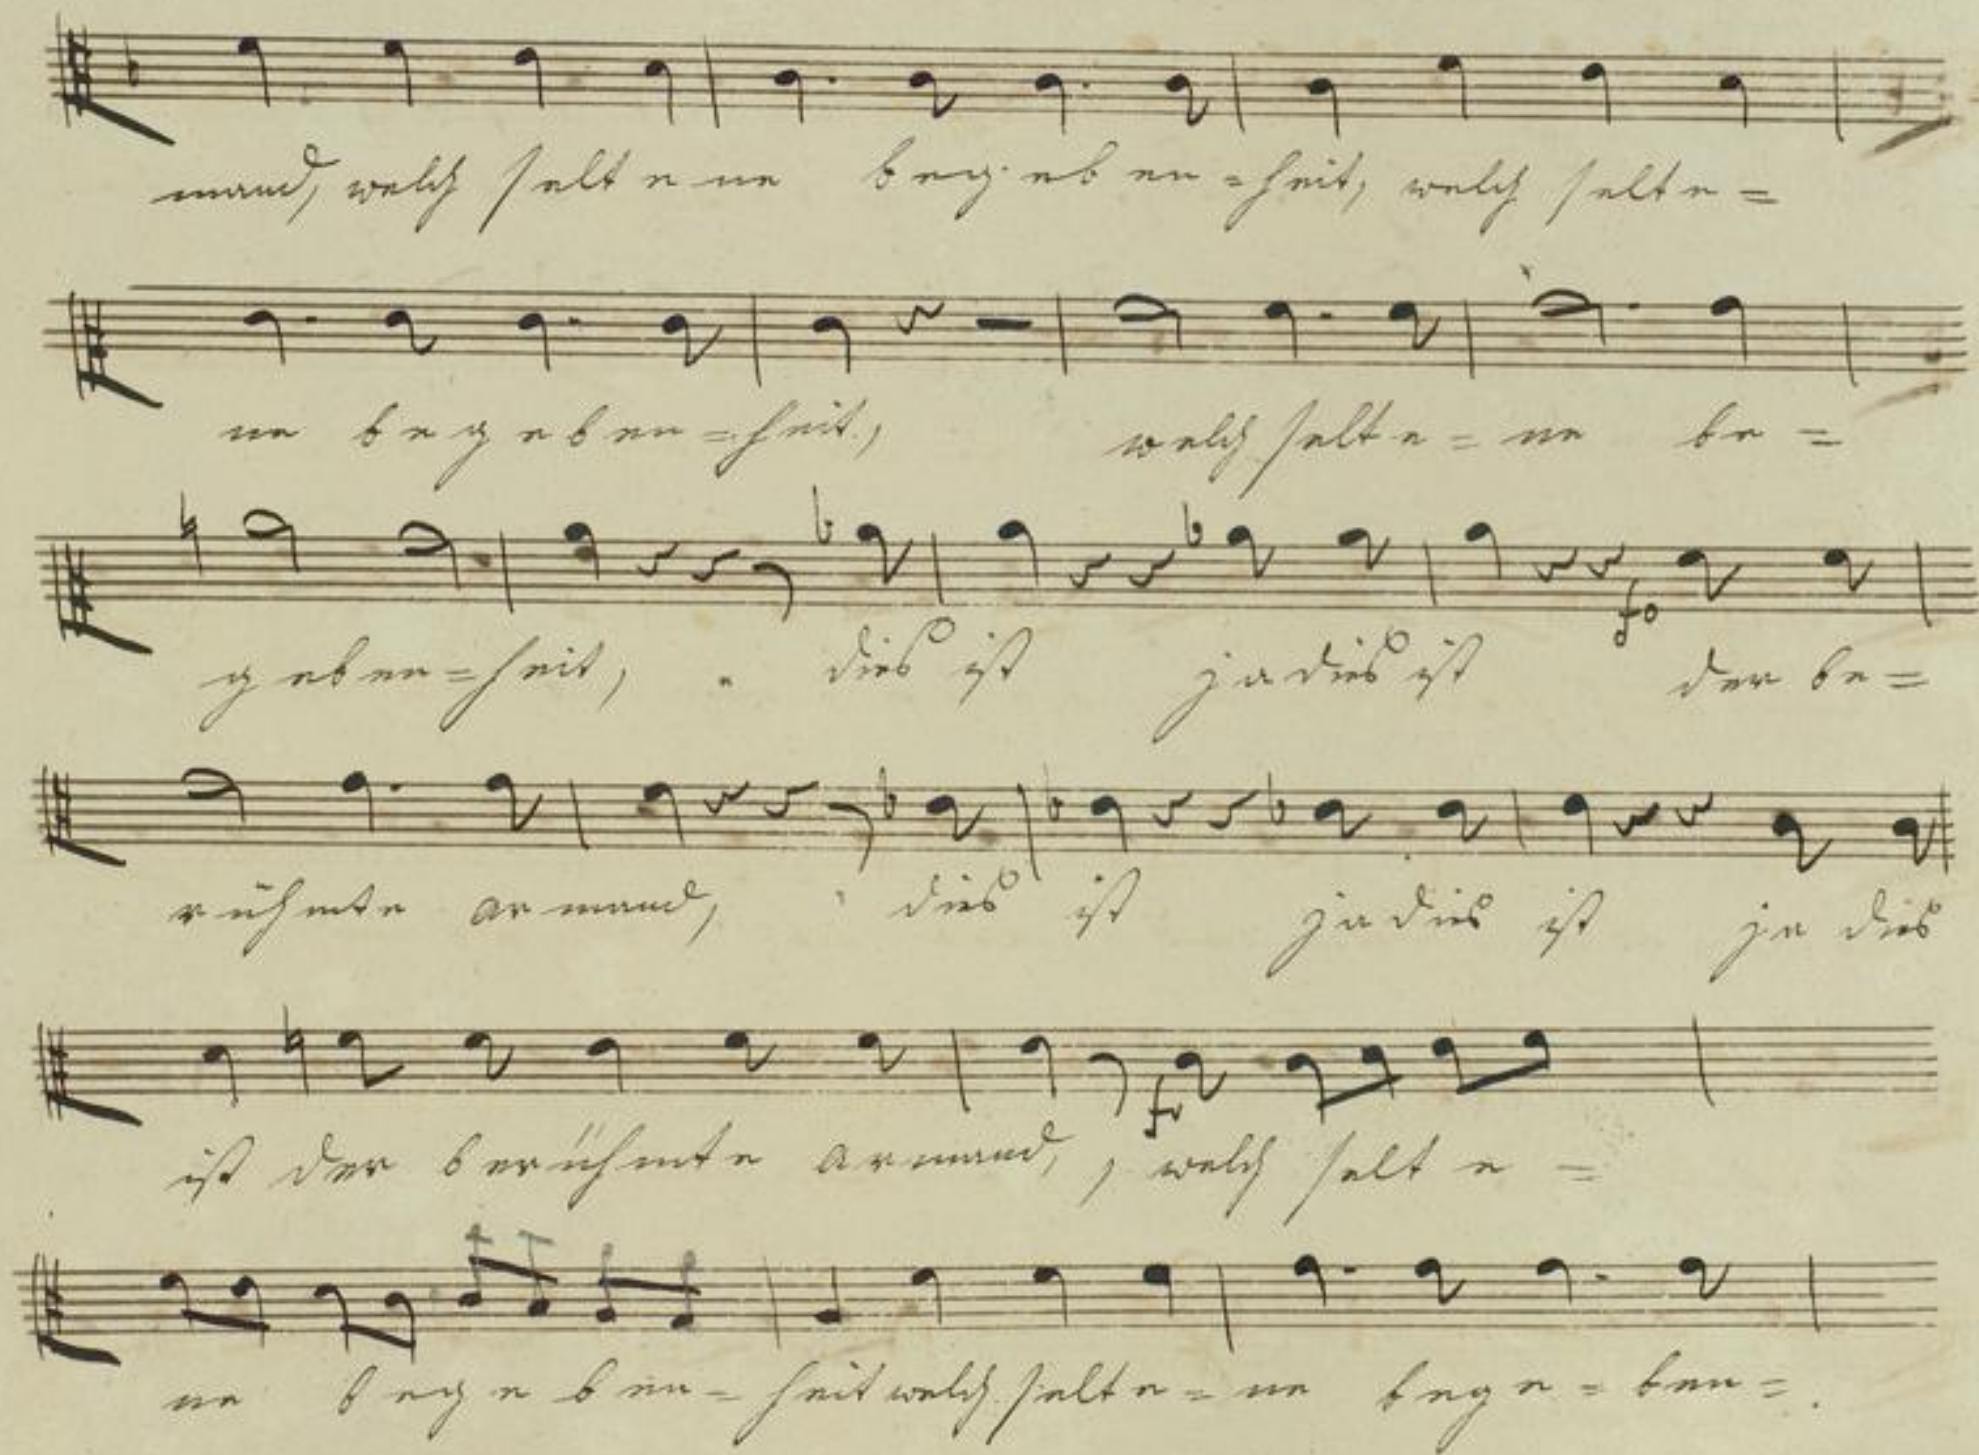 mand, welch seltene begeben=heit, welch selte=
ne begeben=heit, welch selte=ne be=
geben=heit, dies ist ja dies ist der be=
fo
rühmte Armand, dies ist ja dies ist ja dies
ist der berühmte Armand, welch selte=
fo
ne begeben=heit welch selte=ne bege=ben=